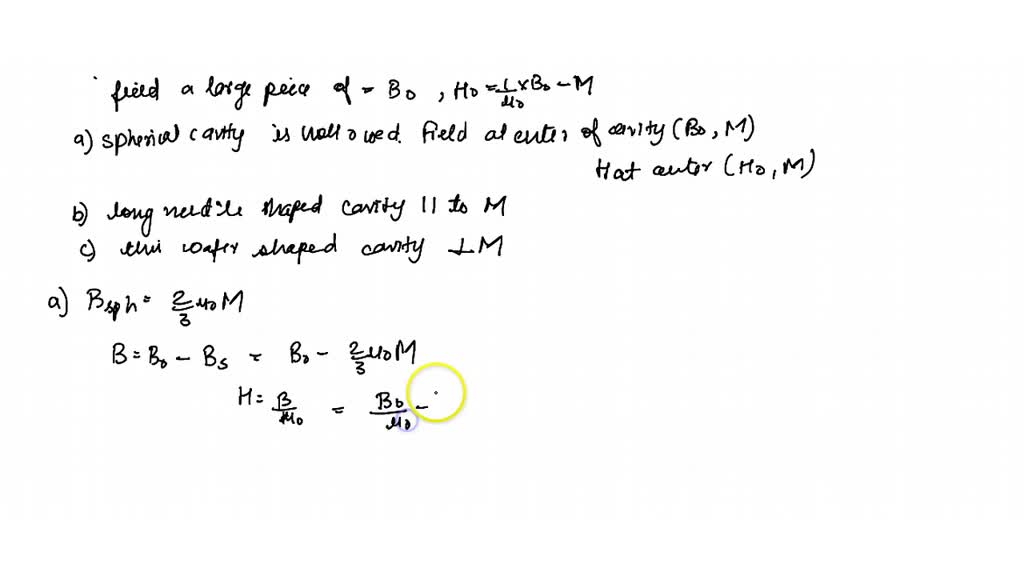 field a large piece of = B₀, H₀ = 1/μ₀ × B₀ - M
a) spherical cavity is hollowed. Field at center of cavity (B₀, M)
H at center (H₀, M)
b) long needle shaped cavity || to M
c) thin wafer shaped cavity ⊥ M
a) Bsph = 2/3 μ₀M
B = B₀ - Bs = B₀ - 2/3 μ₀M
H = B/μ₀ = B₀/μ₀ -